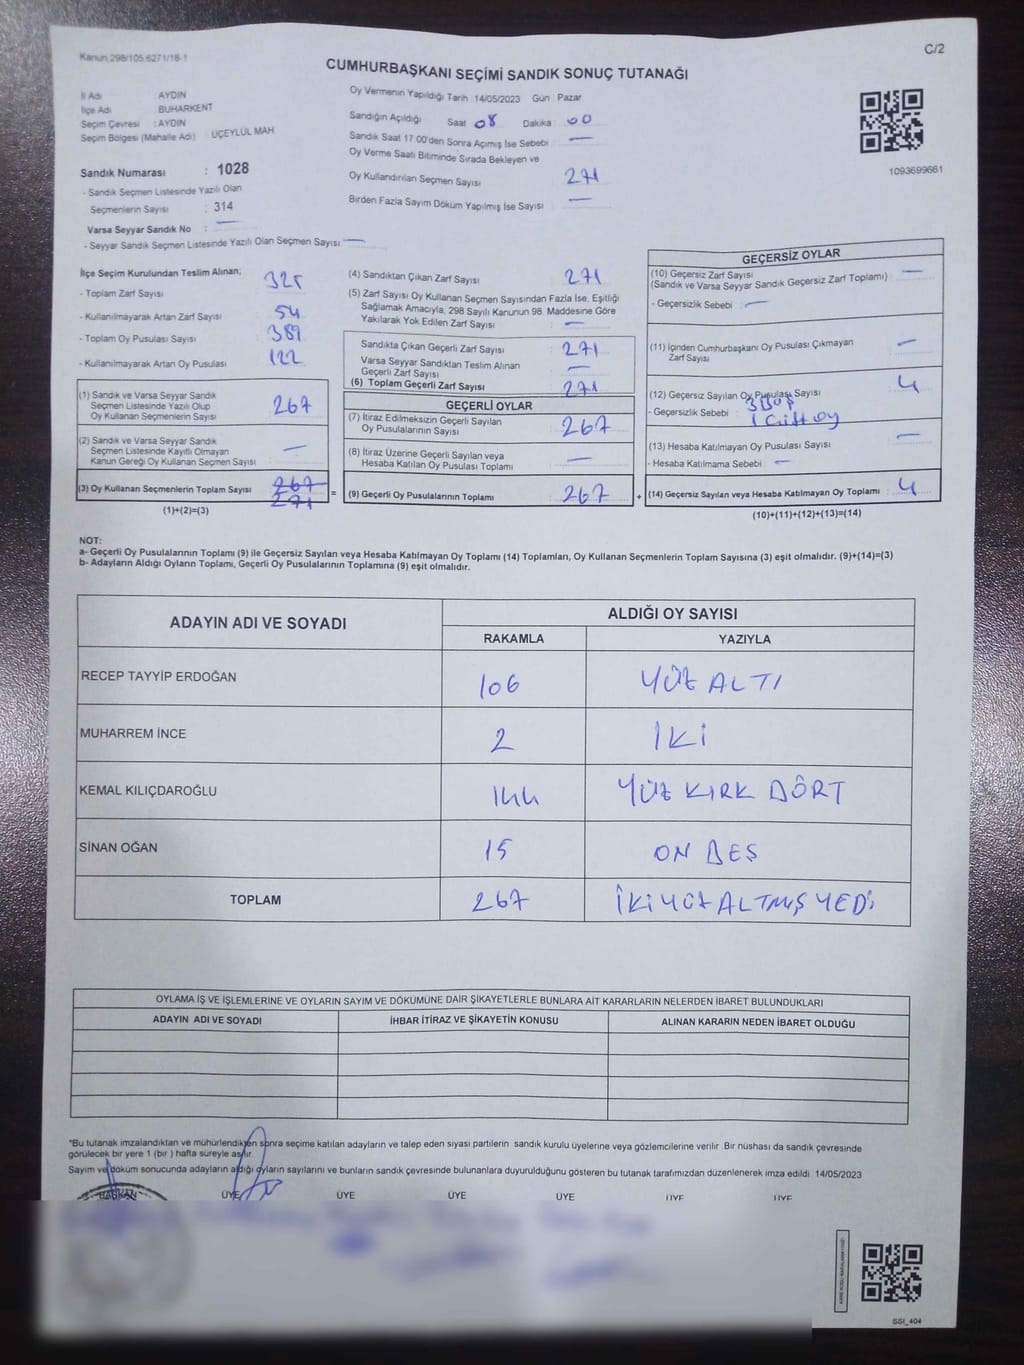 Kanun;298/105:6271/18-1
C/2
CUMHURBAŞKANI SEÇİMİ SANDIK SONUÇ TUTANAĞI
İl Adı AYDIN
İlçe Adı BUHARKENT
Seçim Çevresi : AYDIN
Seçim Bölgesi (Mahalle Adı) ÜÇEYLÜL MAH
Sandık Numarası : 1028
- Sandık Seçmen Listesinde Yazılı Olan
Seçmenlerin Sayısı : 314
Varsa Seyyar Sandık No : —
- Seyyar Sandık Seçmen Listesinde Yazılı Olan Seçmen Sayısı —
Oy Vermenin Yapıldığı Tarih 14/05/2023 Gün Pazar
Sandığın Açıldığı Saat 08 Dakika 00
Sandık Saat 17.00'den Sonra Açımış İse Sebebi —
Oy Verme Saati Bitiminde Sırada Bekleyen ve
Oy Kullandırılan Seçmen Sayısı 271
Birden Fazla Sayım Döküm Yapılmış İse Sayısı —
1093699661
İlçe Seçim Kurulundan Teslim Alınan;
- Toplam Zarf Sayısı 325
- Kullanılmayarak Artan Zarf Sayısı 54
- Toplam Oy Pusulası Sayısı 389
- Kullanılmayarak Artan Oy Pusulası 122
(1) Sandık ve Varsa Seyyar Sandık
Seçmen Listesinde Yazılı Olup
Oy Kullanan Seçmenlerin Sayısı 267
(2) Sandık ve Varsa Seyyar Sandık
Seçmen Listesinde Kayıtlı Olmayan
Kanun Gereği Oy Kullanan Seçmen Sayısı —
(3) Oy Kullanan Seçmenlerin Toplam Sayısı 267
271
=
(1)+(2)=(3)
(4) Sandıktan Çıkan Zarf Sayısı 271
(5) Zarf Sayısı Oy Kullanan Seçmen Sayısından Fazla İse, Eşitliği
Sağlamak Amacıyla, 298 Sayılı Kanunun 98. Maddesine Göre
Yakılarak Yok Edilen Zarf Sayısı —
Sandıkta Çıkan Geçerli Zarf Sayısı 271
Varsa Seyyar Sandıktan Teslim Alınan
Geçerli Zarf Sayısı —
(6) Toplam Geçerli Zarf Sayısı 271
GEÇERLİ OYLAR
(7) İtiraz Edilmeksizin Geçerli Sayılan
Oy Pusulalarının Sayısı 267
(8) İtiraz Üzerine Geçerli Sayılan veya
Hesaba Katılan Oy Pusulası Toplamı —
(9) Geçerli Oy Pusulalarının Toplamı 267
+
GEÇERSİZ OYLAR
(10) Geçersiz Zarf Sayısı —
(Sandık ve Varsa Seyyar Sandık Geçersiz Zarf Toplamı)
- Geçersizlik Sebebi : —
(11) İçinden Cumhurbaşkanı Oy Pusulası Çıkmayan
Zarf Sayısı —
(12) Geçersiz Sayılan Oy Pusulası Sayısı 4
- Geçersizlik Sebebi : 3 Boş
1 Çift oy
(13) Hesaba Katılmayan Oy Pusulası Sayısı —
- Hesaba Katılmama Sebebi : —
(14) Geçersiz Sayılan veya Hesaba Katılmayan Oy Toplamı 4
(10)+(11)+(12)+(13)=(14)
NOT:
a- Geçerli Oy Pusulalarının Toplamı (9) ile Geçersiz Sayılan veya Hesaba Katılmayan Oy Toplamı (14) Toplamları, Oy Kullanan Seçmenlerin Toplam Sayısına (3) eşit olmalıdır. (9)+(14)=(3)
b- Adayların Aldığı Oyların Toplamı, Geçerli Oy Pusulalarının Toplamına (9) eşit olmalıdır.
ADAYIN ADI VE SOYADI ALDIĞI OY SAYISI
RAKAMLA YAZIYLA
RECEP TAYYİP ERDOĞAN 106 YÜZ ALTI
MUHARREM İNCE 2 İKİ
KEMAL KILIÇDAROĞLU 144 YÜZ KIRK DÖRT
SİNAN OĞAN 15 ON BEŞ
TOPLAM 267 İKİ YÜZ ALTMIŞ YEDİ
OYLAMA İŞ VE İŞLEMLERİNE VE OYLARIN SAYIM VE DÖKÜMÜNE DAİR ŞİKAYETLERLE BUNLARA AİT KARARLARIN NELERDEN İBARET BULUNDUKLARI
ADAYIN ADI VE SOYADI İHBAR İTİRAZ VE ŞİKAYETİN KONUSU ALINAN KARARIN NEDEN İBARET OLDUĞU
*Bu tutanak imzalandıktan ve mühürlendikten sonra seçime katılan adayların ve talep eden siyasi partilerin sandık kurulu üyelerine veya gözlemcilerine verilir .Bir nüshası da sandık çevresinde
görülecek bir yere 1 (bir ) hafta süreyle asılır.
Sayım ve döküm sonucunda adayların aldığı oyların sayılarını ve bunların sandık çevresinde bulunanlara duyurulduğunu gösteren bu tutanak tarafımızdan düzenlenerek imza edildi. 14/05/2023
BAŞKAN ÜYE ÜYE ÜYE ÜYE ÜYE ÜYE
SSI_404